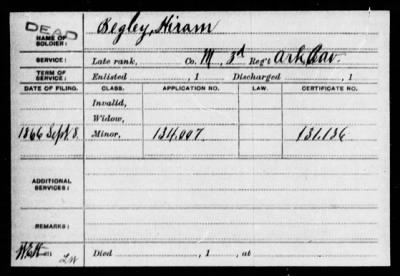 DEAD
NAME OF SOLDIER: Begley, Hiram
SERVICE: Late rank, Co. M, 3d Reg't Ark Cav.
TERM OF SERVICE: Enlisted , 1 Discharged , 1
DATE OF FILING. CLASS. APPLICATION NO. LAW. CERTIFICATE NO.
Invalid,
Widow,
1866 Sept. 8. Minor, 134.007 131.136
ADDITIONAL SERVICES:
REMARKS:
Died , 1 , at